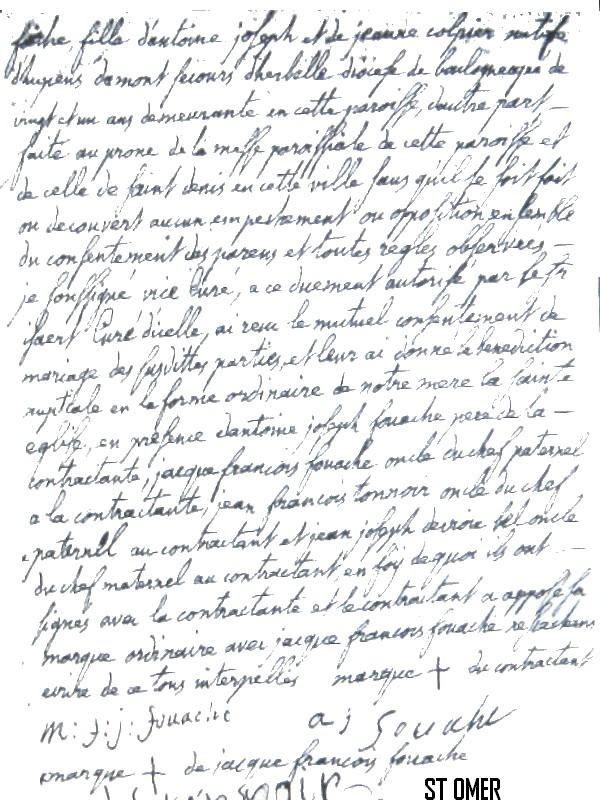 fille d'antoine joseph et de jeanne native
damont secours d'herbelle diocese de boulogne agée de
vingt et un ans demeurante en cette paroisse, d'autre part _
faite au prone de la messe paroissiale de cette paroisse et
de celle de saint denis en cette ville sans qu'il se soit fait
ou decouvert aucun empechement ou opposition ensemble
du consentement des parens et toutes regles observees _
je soussigné vice Curé, a ce duement autorisé par le sr
Curé d'icelle, ai recu le mutuel consentement de
mariage des susdittes parties, et leur ai donné la benediction
nuptiale en la forme ordinaire de notre mere la sainte
eglise, en présence d'antoine joseph fouache pere de la _
contractante, jacque francois fouache oncle du chef paternel
a la contractante, jean francois tonnoir oncle du chef
paternel au contractant et jean joseph decroix bel oncle
du chef maternel au contractant en foy de quoi ils ont _
signes avec la contractante et le contractant a apposé sa
marque ordinaire avec jacque francois fouache ne sachans
ecrire de ce tous interpelles marque + du contractant
m: f: j: fouache a j fouache
marque + de jacque francois fouache
ST OMER